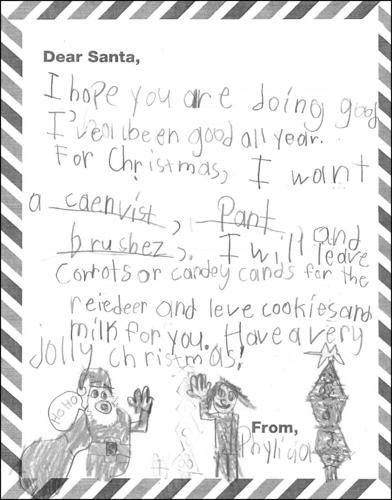 Dear Santa,
I hope you are doing good
I've been good all year.
For Christmas, I want
a caenvist, Pant, and
brushez. I will leave
Corrots or candey cands for the
reiedeer and leve cookies and
milk for you. Have a very
jolly christmas!
HoHo
From,
Phylicia